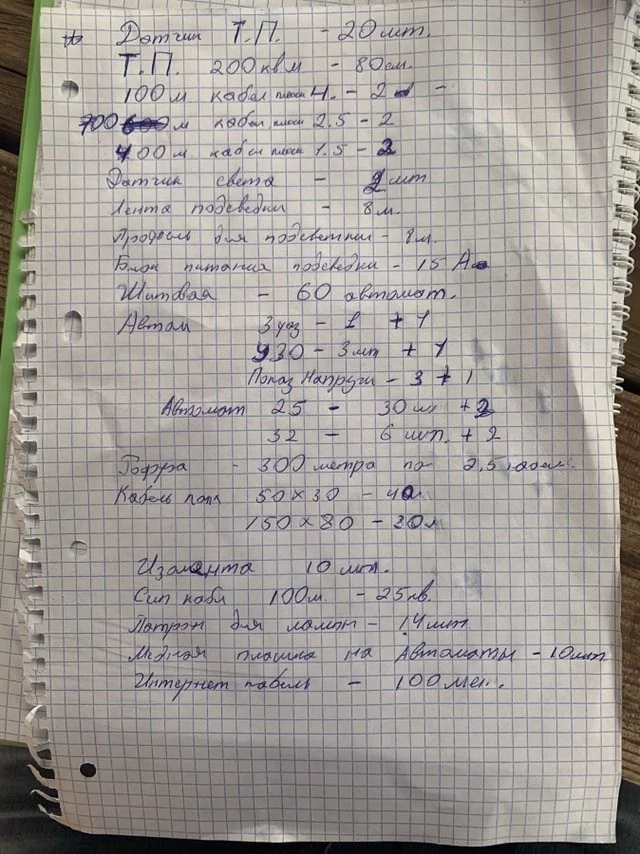 Датчик Т.П. - 20шт.
Т.П. 200 кв м - 80см.
100 м кабел плоск 4. - 2 -
700 м кабел плоск 2.5 - 2
400 м кабел плоск 1.5 - 2
Датчик света - 2 шт
Лента подсведки - 8м.
Профиль для подсветки - 8м.
Блок питания подсведки - 15 А
Шитовая - 60 автомат.
Автом 3 фаз - 1 + 1
У30 - 3шт + 1
Показ Напруги - 3 + 1
Автомат 25 - 30 шт +2
32 - 6 шт. + 2
Гофра - 300 метра по 2,5 кабел.
Кабель 50 х 30 - 40
150 х 80 - 20м
Изалента 10 шт.
Сип кабл 100м. - 25кв.
Патрон для лампы - 14шт
Медная плашка на Автоматы - 10шт
Интернет кабель - 100